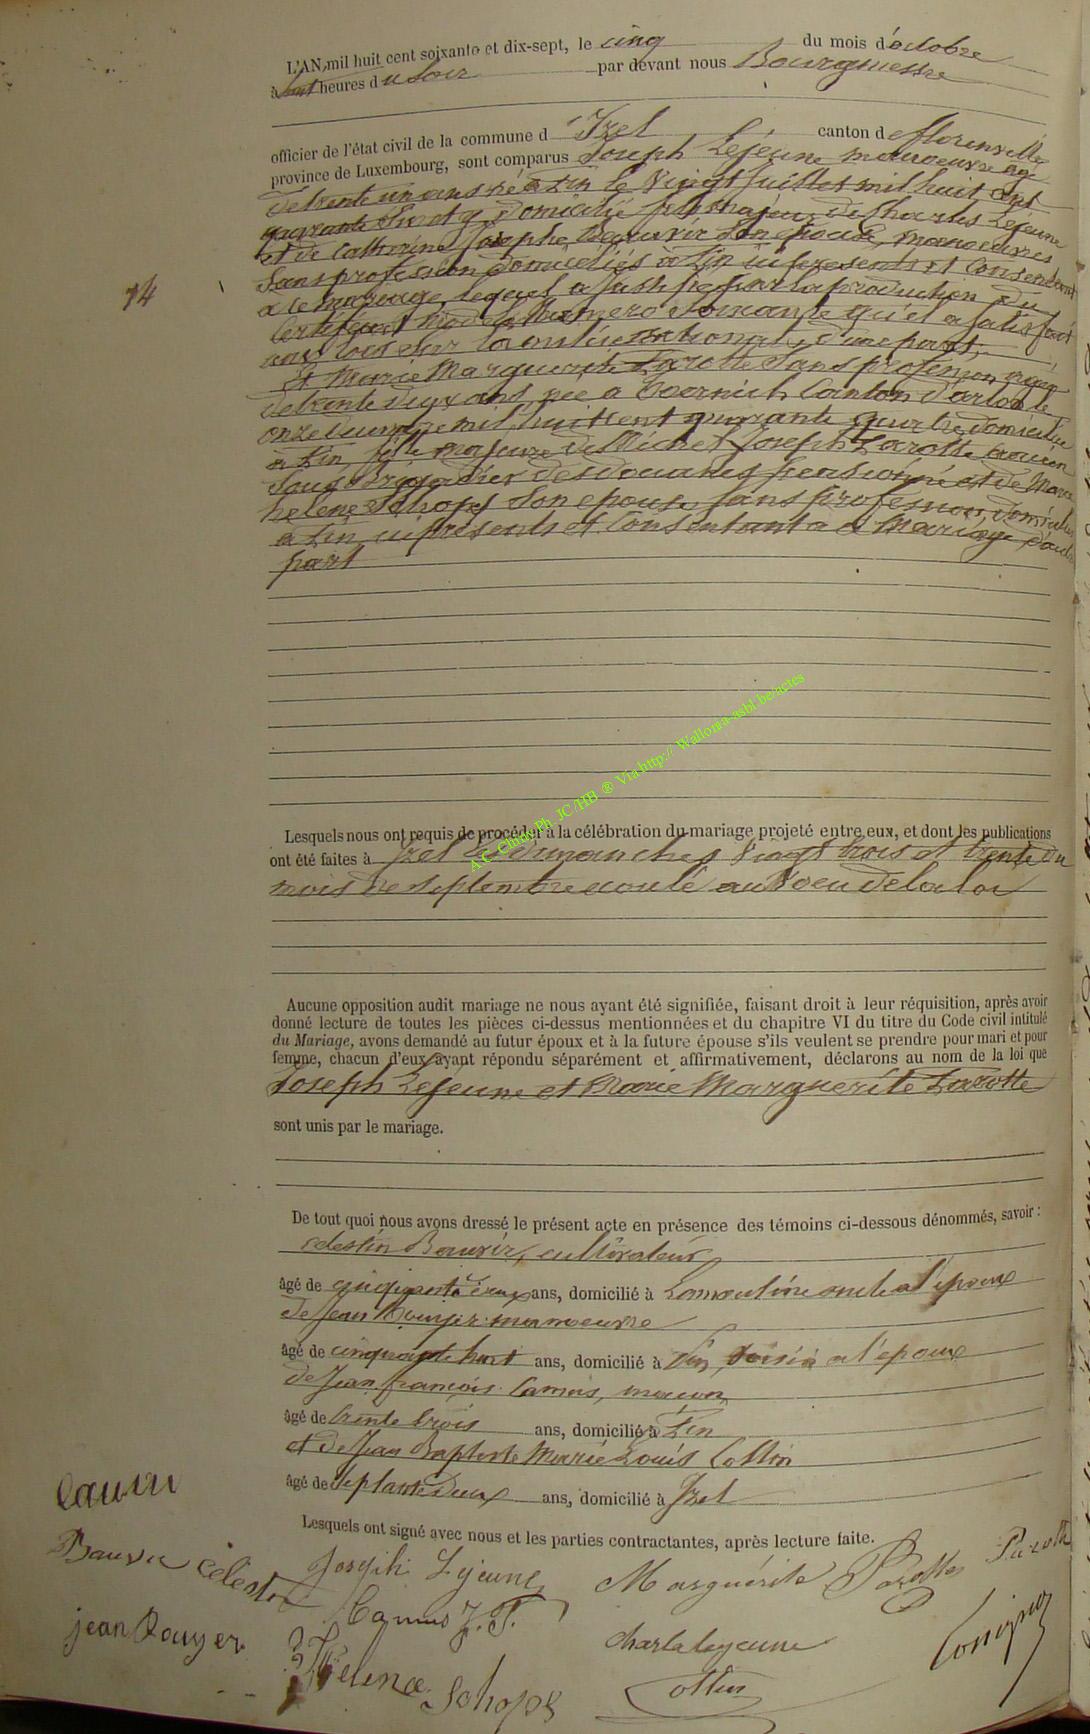 L'AN mil huit cent soixante et dix-sept, le cinq du mois d'octobre
à heures du Soir par devant nous Bourgmestre
officier de l'état civil de la commune d'Izel canton de florenville
province de Luxembourg, sont comparus Joseph Lejeune manoeuvre agé
de trente un ans né a Pin le Vingt Juillet mil huit cent
quarante Six et y domicilié fils majeur de Charles Lejeune
et de Catherine Josephe Bauvir Son epouse, manoeuvres
Sans profession domiciliés à Pin ici presents et Consentant
a le mariage, lequel a justifié par la production du
Certificat modele Numero Soixante qu'il a satisfait
aux lois Sur la milice nationale, d'une part,
Et Marie Marguerite Parotte Sans profession agée
de trente deux ans, née a Canton d'arlon le
onze mil huit cent quarante quatre domiciliée
a Pin, fille majeure de Michel Joseph Parotte ancien
Sous Brigadier des douanes pensionné et de Marie
helene Schops Son epouse, sans profession, domiciliés
a Pin, ici présents et Consentant a ce Mariage d'autre
part
74
Lesquels nous ont requis de procéder à la célébration du mariage projeté entre eux, et dont les publications
ont été faites à Izel les dimanches Vingt trois et trente du
mois de septembre ecoulé au Voeu de la loi
A.C. Chiny Ph. JC/HB ® Via http:// Wallonia-asbl.be/actes
Aucune opposition audit mariage ne nous ayant été signifiée, faisant droit à leur réquisition, après avoir
donné lecture de toutes les pièces ci-dessus mentionnées et du chapitre VI du titre du Code civil intitulé
du Mariage, avons demandé au futur époux et à la future épouse s'ils veulent se prendre pour mari et pour
femme, chacun d'eux ayant répondu séparément et affirmativement, déclarons au nom de la loi que
Joseph Lejeune et Marie Marguerite Parotte
sont unis par le mariage.
De tout quoi nous avons dressé le présent acte en présence des témoins ci-dessous dénommés, savoir :
celestin Bauvir, cultivateur
âgé de cinquante deux ans, domicilié à Lamouline oncle a l'epoux
de Jean Rouyer manoeuvre
âgé de cinquante huit ans, domicilié à Pin, Voisin a l'epoux
de Jean françois Camus, macon
âgé de trente trois ans, domicilié à Pin
et de Jean Baptiste Marie Louis Collin
âgé de septante deux ans, domicilié à Izel
Lesquels ont signé avec nous et les parties contractantes, après lecture faite.
Bauvir Celestin Joseph Lejeune Marguérite Parotte Parotte
jean Rouyer Camus J. F. Charle lejeune
Helene Schops Collin